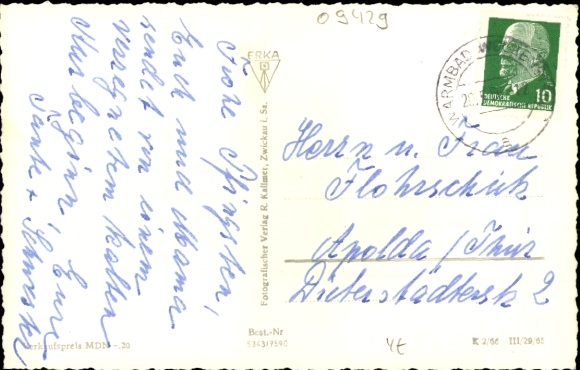 09429
Frohe Pfingsten,
Euch und Mama
sendet von einem
verregneten kalten
Kurbeginn, Eure
Tante + Schwester
ERKA
Fotografischer Verlag R. Kallmer, Zwickau i. Sa.
WARMBAD
10
DEUTSCHE
DEMOKRATISCHE REPUBLIK
Herrn u. Frau
Flohrschütz
Apolda / Thür
Dieterstädterstr 2
Verkaufspreis MDN -,20
Best.-Nr
5343/7590
4€
K 2/66 III/29/65